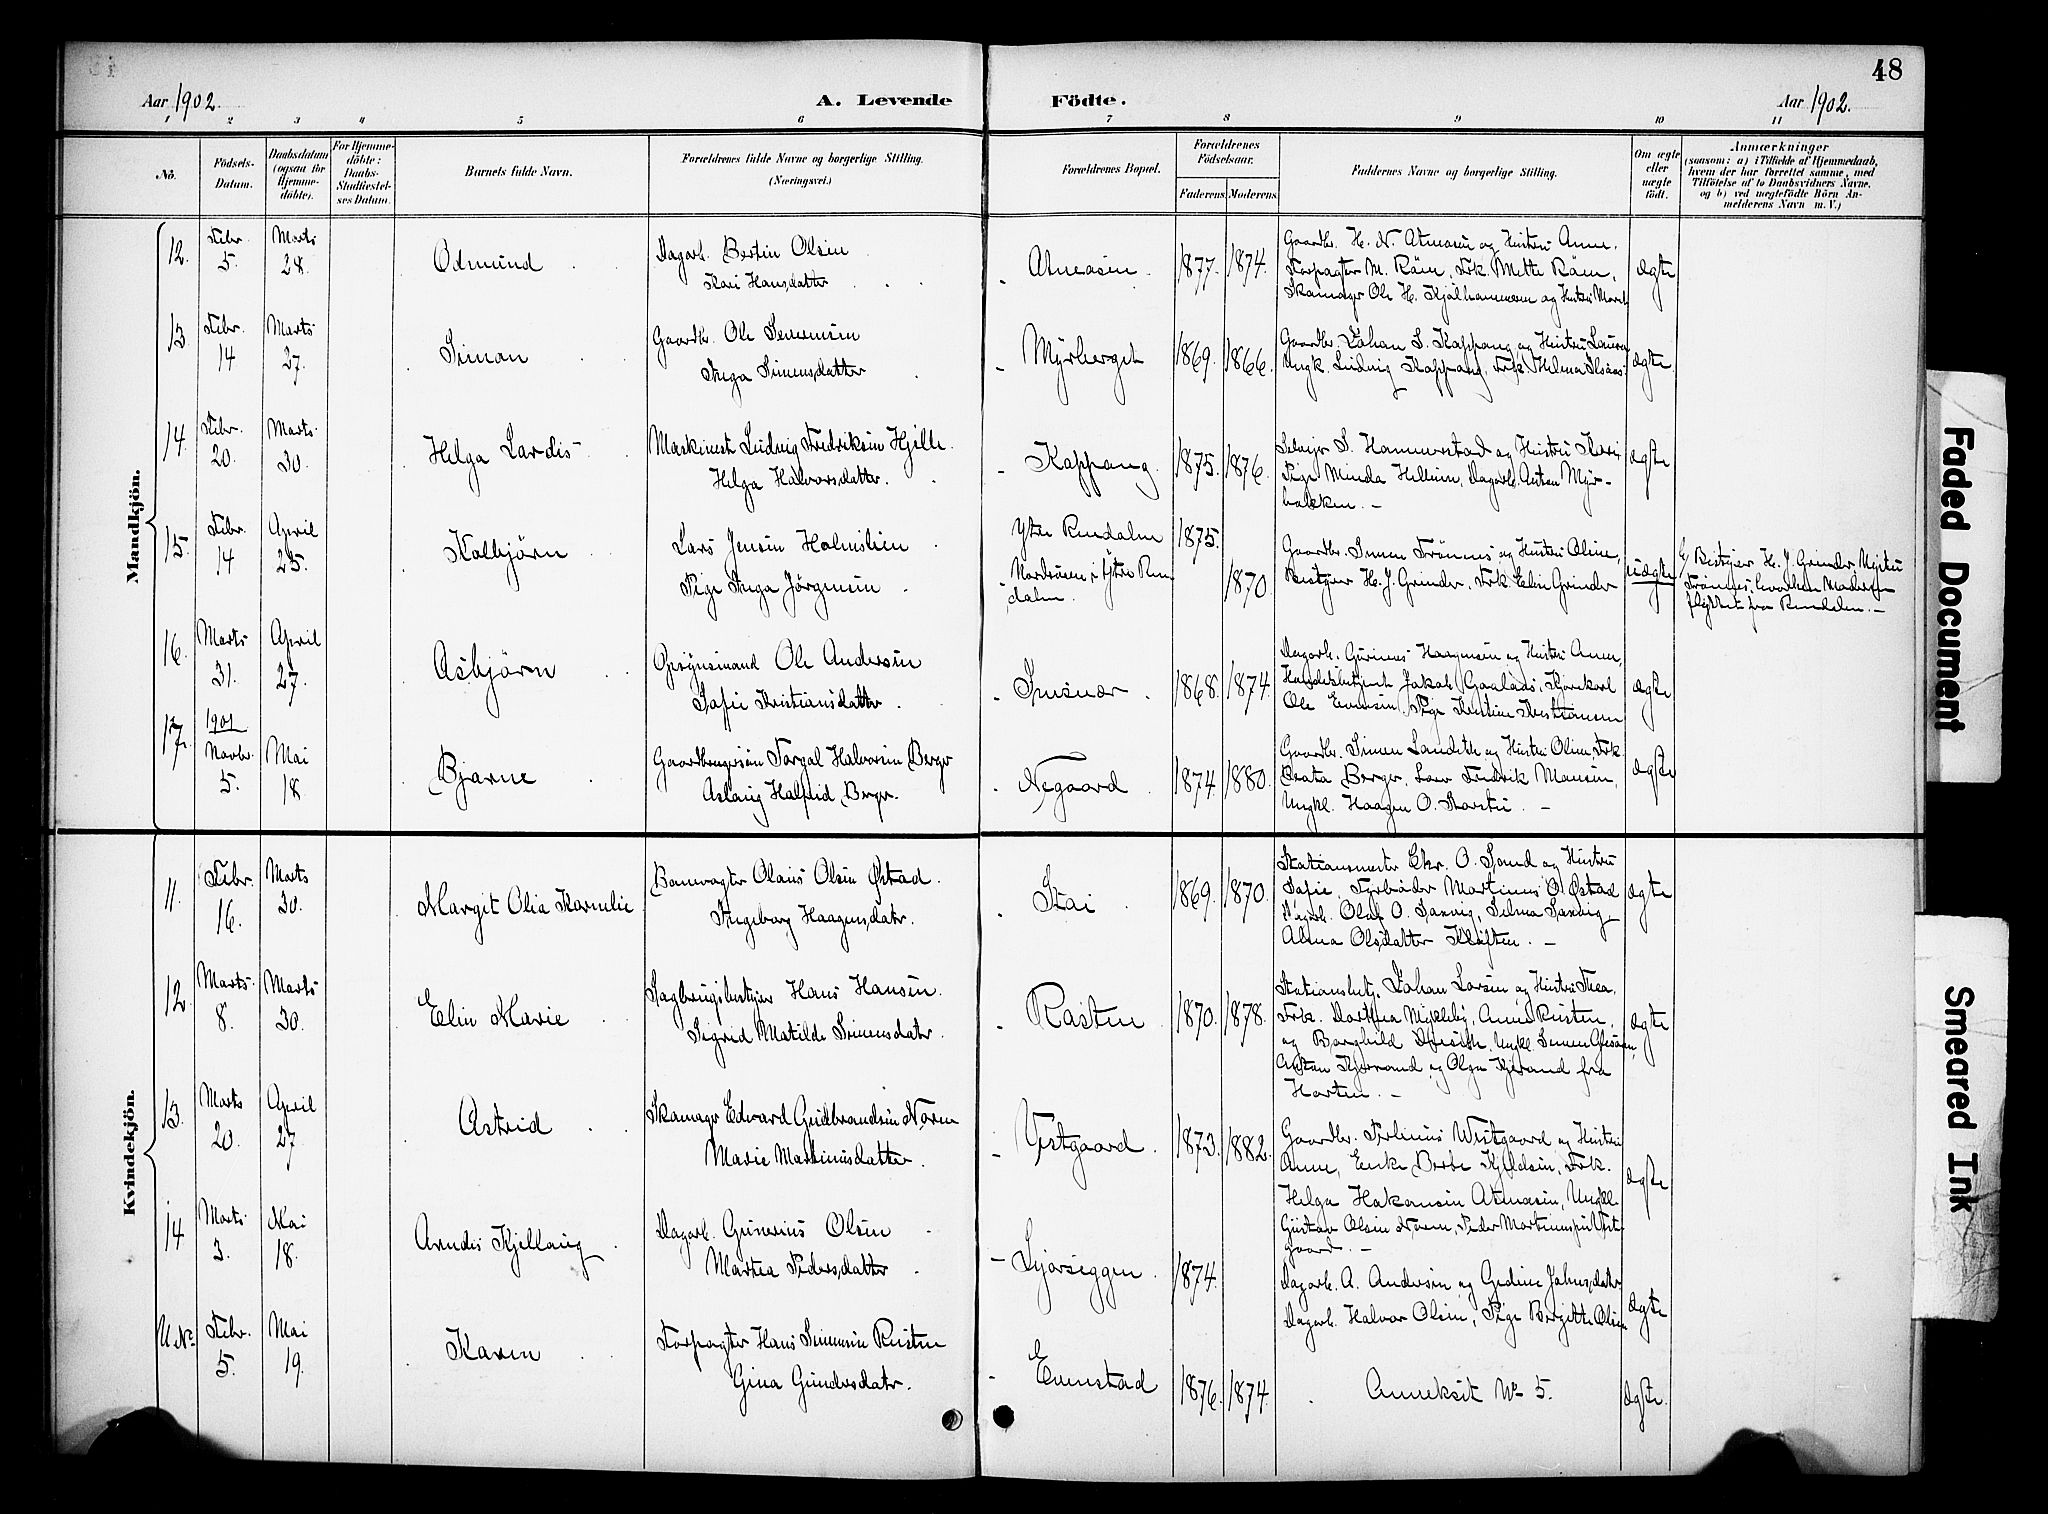 48
Aar 1902. A. Levende Födte. Aar 1902.
1 2 3 4 5 6 7 8 9 10 11
No. Födsels-Datum. Daabsdatum (ogsaa for Hjemme-döbte). For Hjemme-döbte: Daabs-Stadfæstel-ses Datum. Barnets fulde Navn. Forældrenes fulde Navne og borgerlige Stilling. (Næringsvei.) Forældrenes Bopæl. Forældrenes Födselsaar. Faderens Moderens Faddernes Navne og borgerlige Stilling. Om ægte eller uægte födt. Anmærkninger (saasom: a) i Tilfælde af Hjemmedaab, hvem der har forrettet samme, med Tilföielse af to Daabsvidners Navne, og b) ved uægtefödte Börn An-melderens Navn m. V.)
Mandkjön.
12. Febr. 5. Marts 28. Odmund Dagarb. Bertin Olsen
Kari Hansdatter
Atneosen 1877. 1874.
Gaardbr. H. N. Atneosen og Hustru Anne.
Forpagter M. Röen, Frk. Mette Röen,
Skomager Ole H. Kjølhammeren og Hustru Maret
ægte
13 Febr. 14 Marts 27. Simon Gaardbr. Ole Severinsen
Inga Simensdatter
Myrberget 1869. 1866.
Gaardbr. Johan S. Koppang og Hustru Laura
Ungk. Ludvig Koppang, Frk. Helma
ægte.
14. Febr. 20. Marts 30. Helga Lardis Maskinest Ludvig Fredriksen Hjelle.
Helga Halvorsdatter.
Koppang. 1875. 1876.
S. Hammerstad og Hustru Kari
Pige Minda Hellium, Dagarb. Anton Myr-
bakken. –
ægte
15. Febr. 14 April 25. Kolbjörn Lars Jensen Holmslien
Pige Inga Jörgensen
Ytre Rendalen
Nordröen i Ytre Ren
dalen.
1875. 1870.
Gaardbr. Simen Trönnes og Hustru Oline,
Bestyrer H. J. Grinder, Frk. Elin Grinder
uægte
Bestyrer H. J. Grinder,
Trönnes, hvorhen Moderen
flyttet fra Rendalen. –
16. Marts 31. April 27. Asbjörn Opsynsmand Ole Andersen
Sofie Kristiansdatter
1868. 1874.
Dagarb. Gunerius Haagensen og Hustru Anne,
Handelsbetjent Jakob Gaalaas, Kjörekarl
Ole Evensen, Pige Kristine Kristiansen
ægte
17. 1901 Novbr. 5. Mai 18 Bjarne Gaardbrugersøn Torgal Halvorsen Berger
Aslaug Halfrid Berger.
Negaard 1874. 1880.
Gaardbr. Simen Landeth og Hustru Oline, Frk.
Beata Berger, Lars Fredrik Monsen,
Ungkl. Haagen O. Storstu. –
ægte
Kvindekjön.
11. Febr. 16. Marts 30. Margit Olia Kornelie Banevogter Olaus Olsen Østad.
Ingeborg Haagensdatr.
Stai 1869. 1870.
Stationsmester Chr. O. Sand og Hustru
Sofie, Fyrböder Martinus O. Østad
Dagarb. Olaf O. Sanvig, Selma Sanvig
Alma Olsdatter Kløften. –
ægte
12. Marts 8. Marts 30. Elin Marie Sagbrugsbestyrer Hans Hansen.
Sigrid Matilde Simensdatr.
Rasten 1870. 1878.
Stationsbetj. Johan Larsen og Hustru Thea,
Frk. Dorthea Mykleby, Anne Rusten,
og Borghild, Ungkl. Simen
Anton Kjerrand og Olga Kjerand fra
Horten. –
ægte
13. Marts 20. April 27. Astrid Skomager Edvard Gudbrandsen Noren
Marie Martinusdatter.
Vestgaard. 1873. 1882.
Gaardbr. Perlinus Westgaard og Hustru
Anne, Enke Berte Kjeldsen, Frk.
Helga Hakonsen Atneosen, Ungkl.
Gustav Olsen Noren, Peder Martinussen Vest-
gaard. –
ægte
14 Marts 3. Mai 18. Arndis Kjellaug Dagarb. Gunerius Olsen
Martea Pedersdatter
Sjöliseggen 1874.
Dagarb. A. Andersen og Gudine Johnsdatr.
Dagarb. Halvor Olsen, Pige Bergitte Olsen
ægte
U. No. Febr. 5. Mai 19. Karen Forpagter Hans Simensen Rusten
Gina Gundersdatr.
Evenstad 1876. 1874. Annekset No 5. ægte.
Faded Document
Smeared Ink